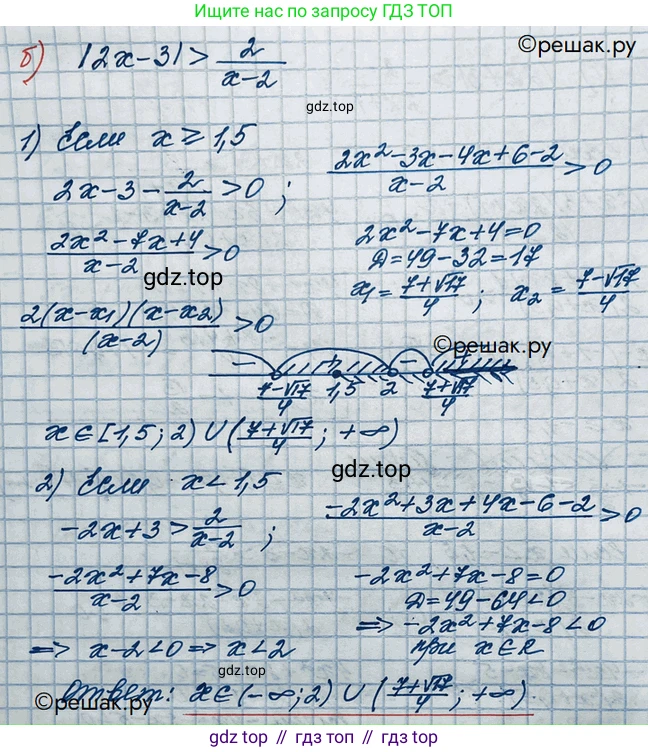 Ищите нас по запросу ГДЗ ТОП
©решак.ру
б) |2x-3| > 2/(x-2)
gdz.top
1) Если x ≥ 1,5
2x-3 - 2/(x-2) > 0 ; (2x²-3x-4x+6-2)/(x-2) > 0
(2x²-7x+4)/(x-2) > 0
2x²-7x+4=0
Д=49-32=17
x₁ = (7+√17)/4 ; x₂ = (7-√17)/4
gdz.top
2(x-x₁)(x-x₂)/(x-2) > 0
©решак.ру
− + − +
(7-√17)/4 1,5 2 (7+√17)/4
x∈[1,5; 2) ∪ ((7+√17)/4 ; +∞)
gdz.top
2) Если x < 1,5
-2x+3 > 2/(x-2) ; (-2x²+3x+4x-6-2)/(x-2) > 0
(-2x²+7x-8)/(x-2) > 0
-2x²+7x-8=0
Д=49-64<0
=> -2x²+7x-8<0
при x∈R
=> x-2<0 => x<2
gdz.top
Ответ: x∈(-∞; 2) ∪ ((7+√17)/4 ; +∞).
©решак.ру
gdz.top // gdz.top // gdz.top